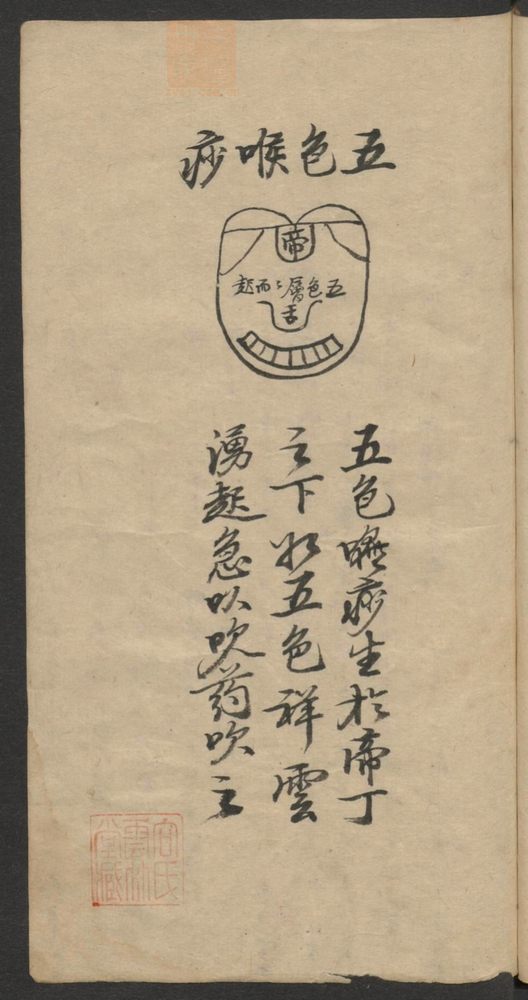 五色喉痧
帝
五色層〻而起
舌
五色喉痧生於帝丁
之下如五色祥雲
湧起急以吹药吹之